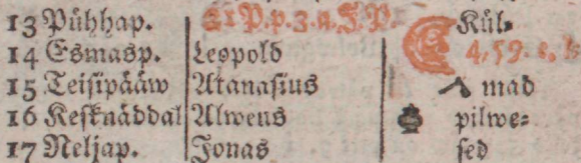 13 Pühhap. 21 P. p. 3. a. J. P. Kül-
14 Esmasp. Leopold 4, 59. e. l.
15 Teisipääw Atanasius mad
16 Kesknäddal Alweus pilwe-
17 Neljap. Jonas sed